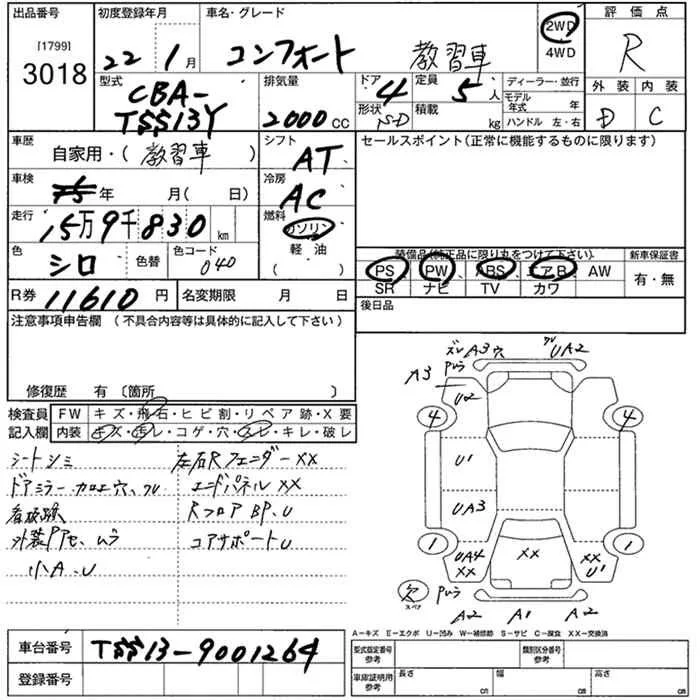 出品番号
[1799]
3018
初度登録年月
22 1月
車名・グレード
コンフォート 教習車
2WD
4WD
評価点
R
型式
CBA-
TSS13Y
排気量
2000 CC
ドア
4
形状
SD
定員
5人
積載
kg
ディーラー・並行
モデル年式 年
ハンドル 左・右
外装 内装
D C
車歴
自家用・(教習車)
シフト
AT
セールスポイント(正常に機能するものに限ります)
車検
年 月(日)
冷房
AC
走行
15万9千830 km
燃料
ガソリン
軽・油
色
シロ
色替
色コード
040
装備品(純正品に限り丸をつけて下さい)
新車保証書
PS PW ABS エアB AW
SR ナビ TV カワ
有・無
R券 11610円
名変期限 月 日
後日品
注意事項申告欄(不具合内容等は具体的に記入して下さい)
修復歴 有〔箇所〕
検査員
記入欄
FW キズ・飛石・ヒビ割・リペア跡・X要
内装 キズ・汚レ・コゲ・穴・スレ・キレ・破レ
シートシミ
ドアミラーカロエ穴、ワレ
看板跡
外装Pアセ、ムラ
小A、U
左右RフェンダーXX
エンドパネルXX
RフロアBP、U
コアサポートU
ズレA3穴
ワレUA2
A3
Pムラ
U2
4
4
U1
UA3
1
1
UA4
XX
XX
XX
U1
欠
スペア
Pムラ
A2
A1
A2
A-キズ E-エクボ U-凹み W-補修跡 S-サビ C-腐食 XX-交換済
車台番号
TSS13-9001264
登録番号
型式指定番号
参考
類別区分番号
参考
車庫証明用
参考
長さ cm
幅 cm
高さ cm